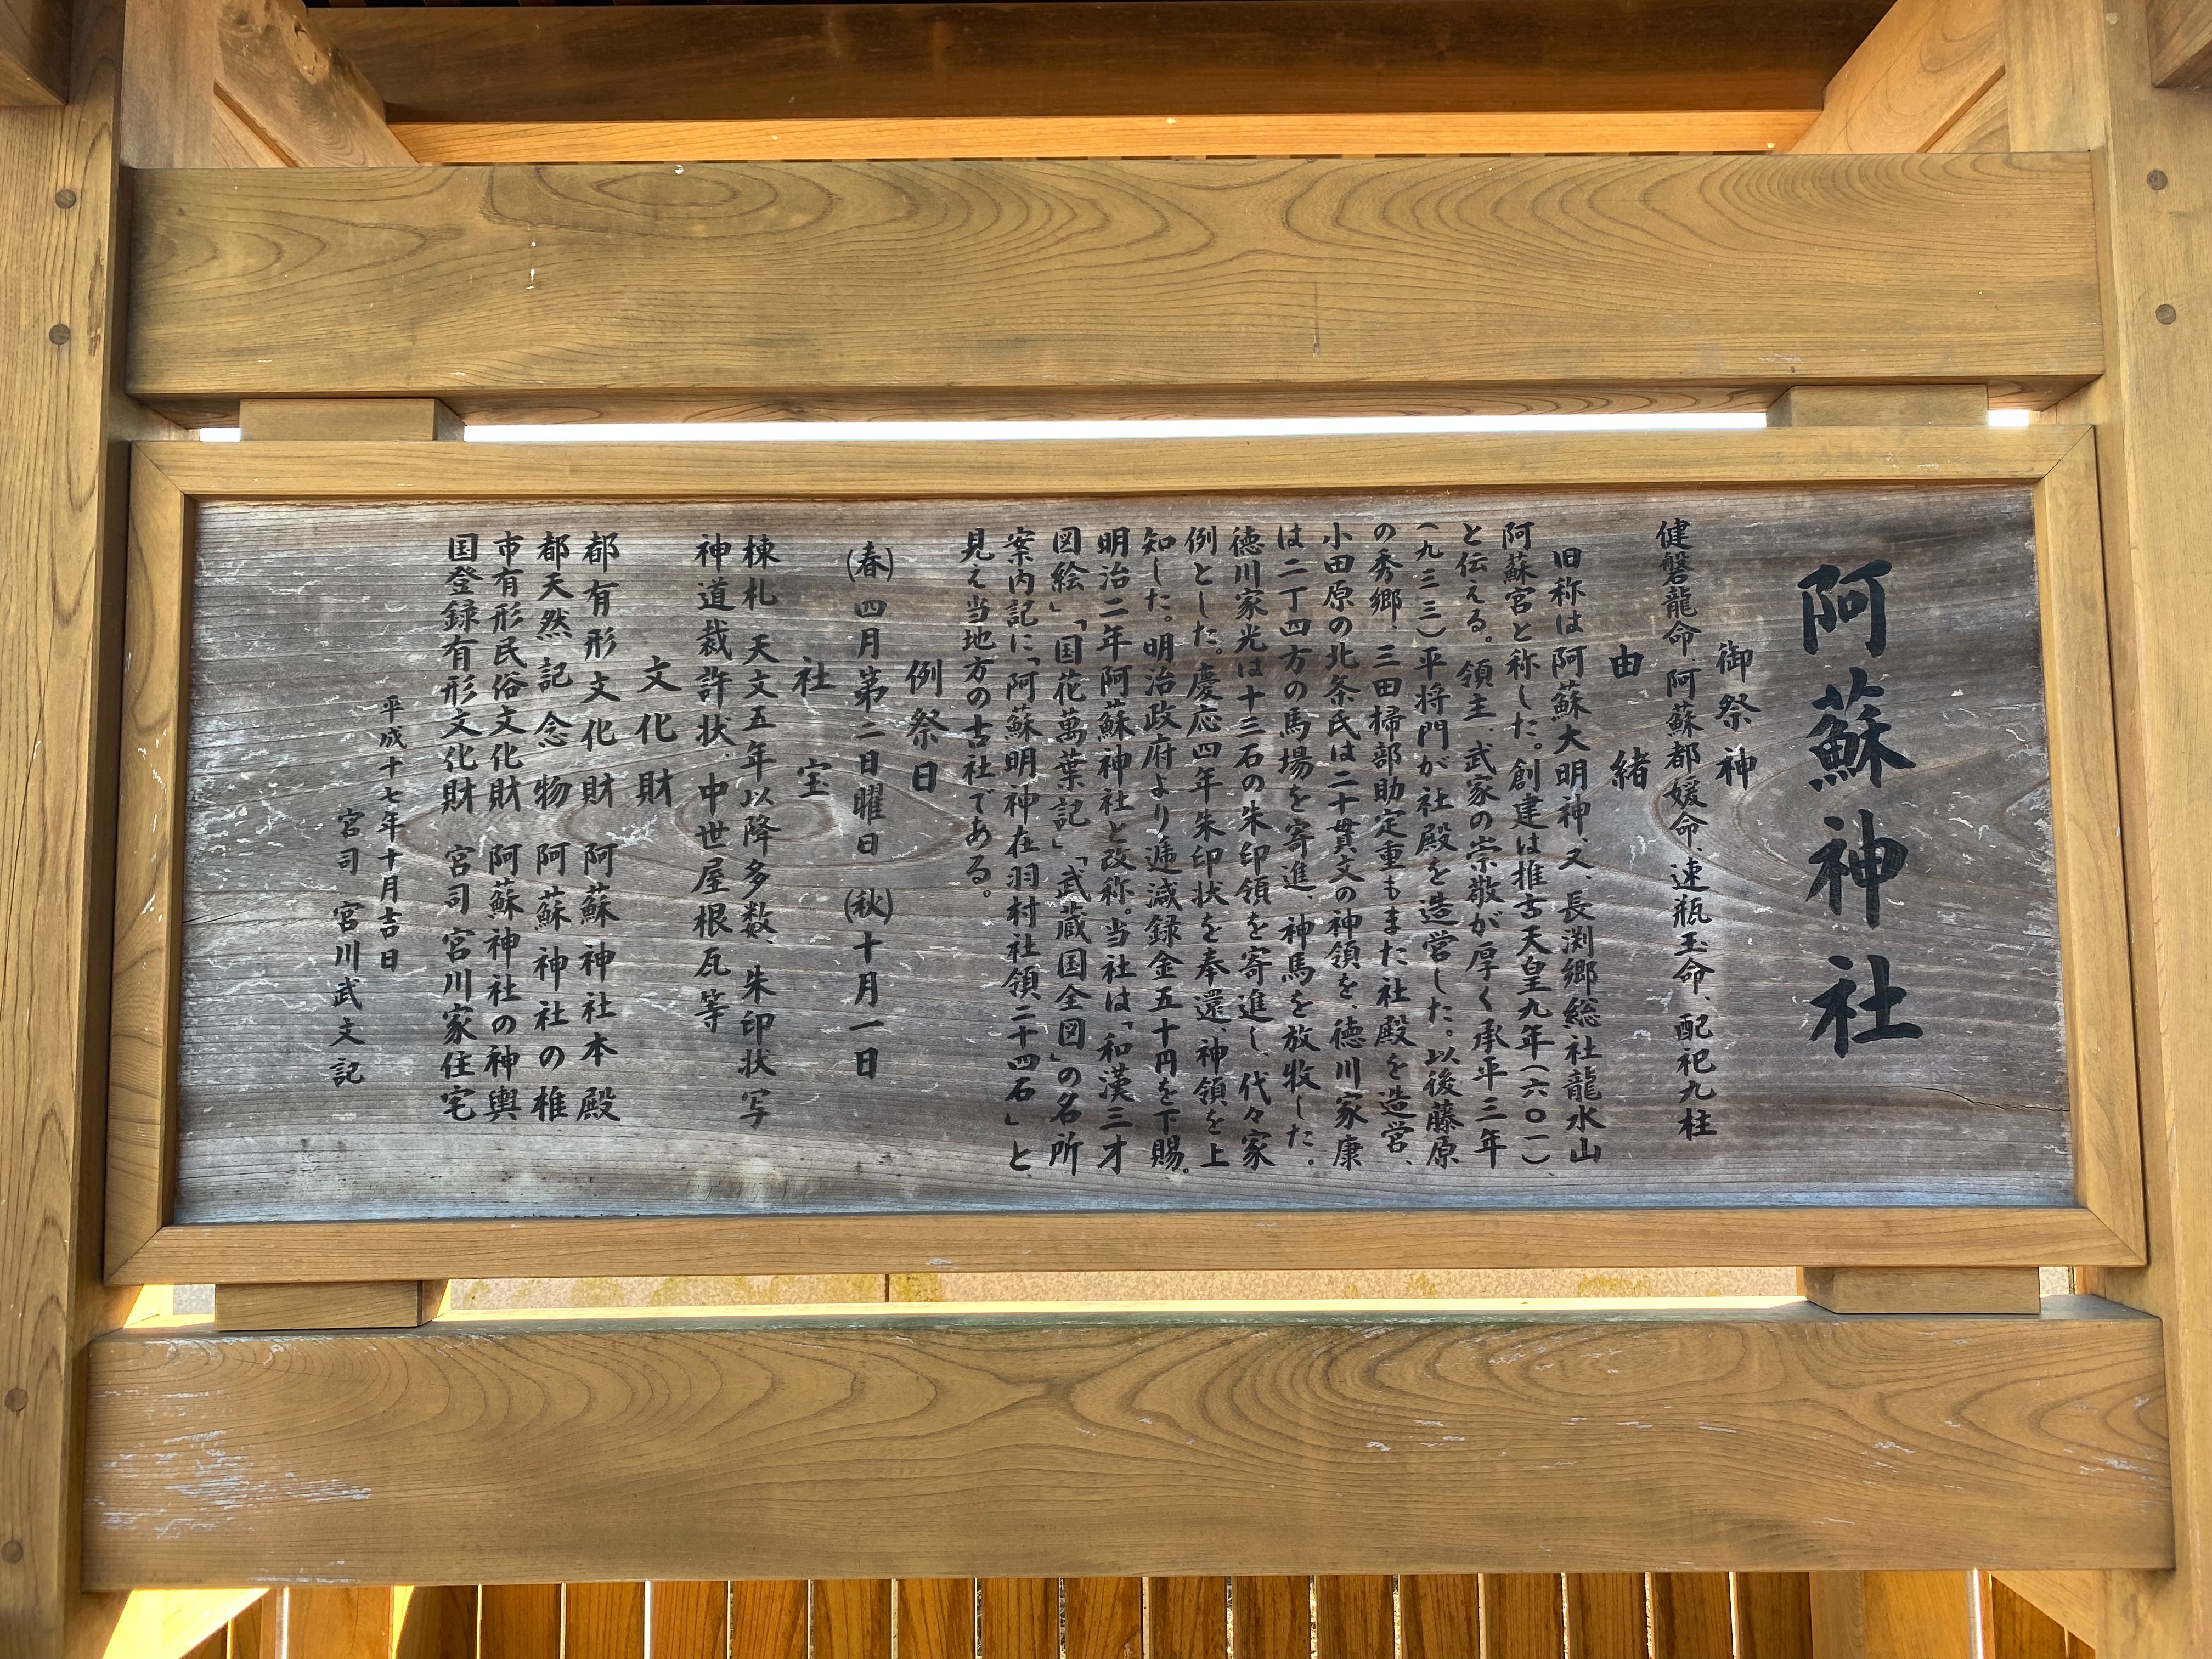 阿蘇神社
御祭神
健磐龍命、阿蘇都媛命、速瓶玉命、配祀九柱
由緒
旧称は阿蘇大明神、又、長渕郷総社龍水山
阿蘇宮と称した。創建は推古天皇九年(六〇一)、
と伝える。領主、武家の崇敬が厚く承平三年
(九三三)平将門が社殿を造営した。以後藤原
の秀郷、三田掃部助定重もまた社殿を造営、
小田原の北条氏は二十貫文の神領を、徳川家康
は二丁四方の馬場を寄進、神馬を放牧した。
徳川家光は十三石の朱印領を寄進し、代々家
例とした。慶応四年朱印状を奉還、神領を上
知した。明治政府より逓減録金五十円を下賜。
明治二年阿蘇神社と改称。当社は「和漢三才
図絵」「国花萬葉記」、「武蔵国全図」の名所
案内記に「阿蘇明神在羽村社領二十四石」と
見え当地方の古社である。
例祭日
(春)四月第二日曜日 (秋)十月一日
社宝
棟札 天文五年以降多数、朱印状写
神道裁許状、中世屋根瓦等
文化財
都有形文化財 阿蘇神社本殿
都天然記念物 阿蘇神社の椎
市有形民俗文化財 阿蘇神社の神輿
国登録有形文化財 宮司宮川家住宅
平成十七年十月吉日
宮司 宮川武文記